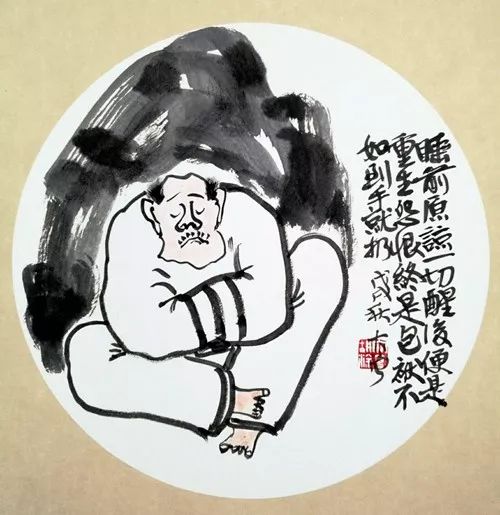 睡前原諒一切醒後便是
重生怨恨終是包袱不
如到手就扔 戊戌秋